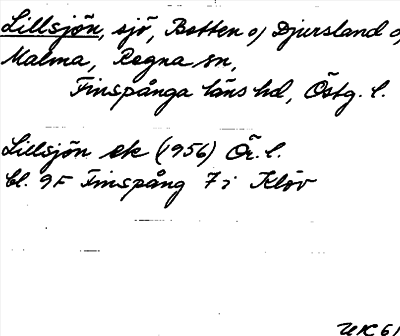 Lillsjön, sjö, Botten o/ Djursland o/
Malma, Regna sn,
Finspånga läns hd, Östg. l.
Lillsjön ek (1956) Ör. l.
bl. 9F Finspång 7i Klöv
UK 61